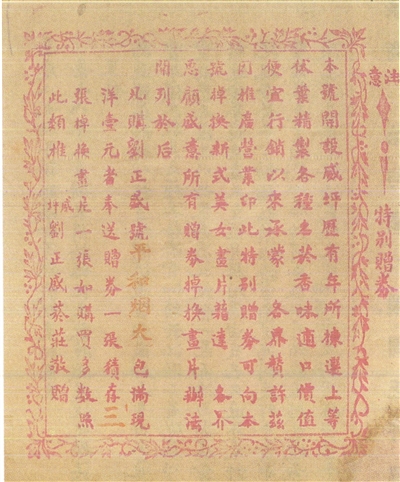 注意
特別贈券
本號開設咸坪歷有年所揀選上等
伏葉精製各種名菸香味適口價值
便宜行銷以來承蒙 各界贊許茲
為推廣營業印此特別贈券可向本
號掉換新式美女畫片藉達 各界
惠顧盛意所有贈券掉換畫片辦法
開列於后
凡購劉正盛號平和烟大 包滿現
洋壹元者奉送贈券一張積存三
張掉換畫片一張如購買多數照
此類推 咸坪劉正盛菸莊敬贈